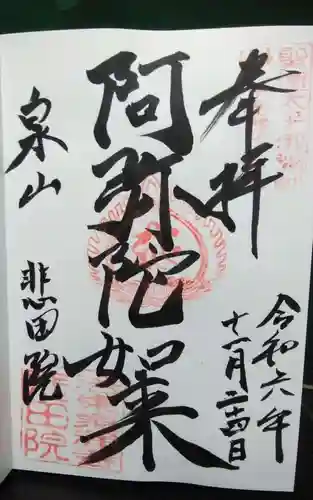 奉拝
令和六年
十一月二十四日
阿弥陀如来
泉山
悲田院